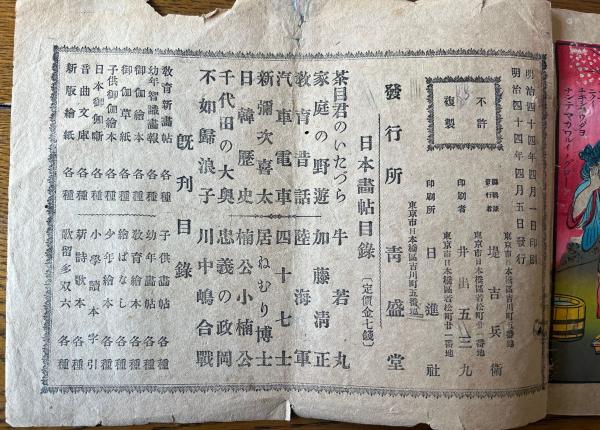 明治四十四年四月一日印刷
明治四十四年四月五日發行
不許
複製
東京市日本橋區吉川町五番地
編輯兼
發行者
堤吉兵衛
東京市日本橋區若松町廿一番地
印刷者 井出五三九
東京市日本橋區若松町廿一番地
印刷所 日進社
東京市日本橋區吉川町五番地
發行所 靑盛堂
日本畵帖目錄 (定價金七錢)
茶目君のいたづら 牛若丸
家庭の野遊 加藤淸正
敎育・昔話 陸海軍
汽車電車 四十七士
新彌次喜太 居ねむり博士
日韓歷史 楠公小楠公
千代田の大奧 忠義の政岡
不如歸浪子 川中嶋合戰
旣刊目錄
敎育新畵帖 各種 子供畵帖 各種
幼年智識畵報 各種 幼年畵帖 各種
御伽繪本 各種 敎育繪本 各種
御伽草紙 各種 繪ばなし 各種
子供御伽繪本 各種 少年繪本 各種
日本御伽噺 各種 小學讀本字引
音曲文庫 各種 新詩歌本 各種
新版繪紙 各種 歌留多双六 各種